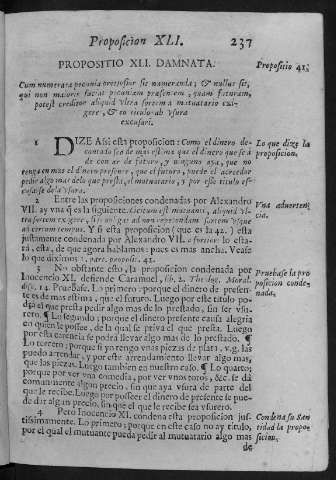 Proposicion XLI. 237
PROPOSITIO XLI. DAMNATA.
Propositio 41.
Cum numerata pecunia pretiosior sit numeranda; & nullus sit,
qui non maioris faciat pecuniam præsentem, quam futuram,
potest creditor aliquid ultra sortem à mutuatario exi-
gere, & eo titulo ab usura
excusari.
1 DIZE Asi esta proposicion: Como el dinero de
contado sea de mas estima que el dinero que se à
de contar de futuro, y ninguno aya, que no
tenga en mas el dinero presente, que el futuro, puede el acreedor
pedir algo mas de lo que presta, al mutuatario, y por esse titulo es-
cusarse de la Usura.
Lo que dize la
proposicion.
2 Entre las proposiciones condenadas por Alexandro
VII. ay vna q̃ es la siguiente. Licitum est mutuanti, aliquid Ul-
tra sortem exigere, si se obliget ad non repetendam sortem Usque
ad certum tempus. Y si esta proposicion (que es la 42.) està
justamente condenada por Alexandro VII. à fortiori lo esta-
rà, esta, de que agora hablamos: pues es mas ancha. Vease
lo que diximos 2. part. proposit. 42.
Vna adverten-
cia.
3 No obstante esto, la proposicion condenada por
Inocencio XI. defiende Caramuel, lib. 2. Theolog. Moral.
disp. 14. Pruebase. Lo primero: porque el dinero de presen-
te es de mas estima, que el futuro. Luego por este titulo po-
drà el que presta pedir algo mas de lo prestado, sin ser vsu-
rero. ¶ Lo segundo; porque el dinero presente causa alegria
en quien le possee, de la qual se priva el que presta. Luego
por esta carencia se podrà llevar algo mas de lo prestado. ¶
Lo tercero; porque si yo tengo vnas piezas de plata, v.g. las
puedo arrendar, y por este arrendamiento llevar algo mas,
que las piezas. Luego tambien en nuestro caso. ¶ Lo quarto;
porque por ver vna comedia, por ver vnos toros, &c. se dà
comunmente algun precio, sin que aya usura de parte del
que le recibe. Luego por posseer el dinero de presente se pue-
de dar algun precio, sin que el que le recibe sea vsurero.
Pruebase la pro
posicion conde-
nada.
4 Pero Inocencio XI. condena esta proposicion jus-
tissimamente. Lo primero; porque en este caso no ay titulo,
por el qual el mutuante pueda pedir al mutuatario algo mas
Condena su San
tidad la propo
sicion.
de